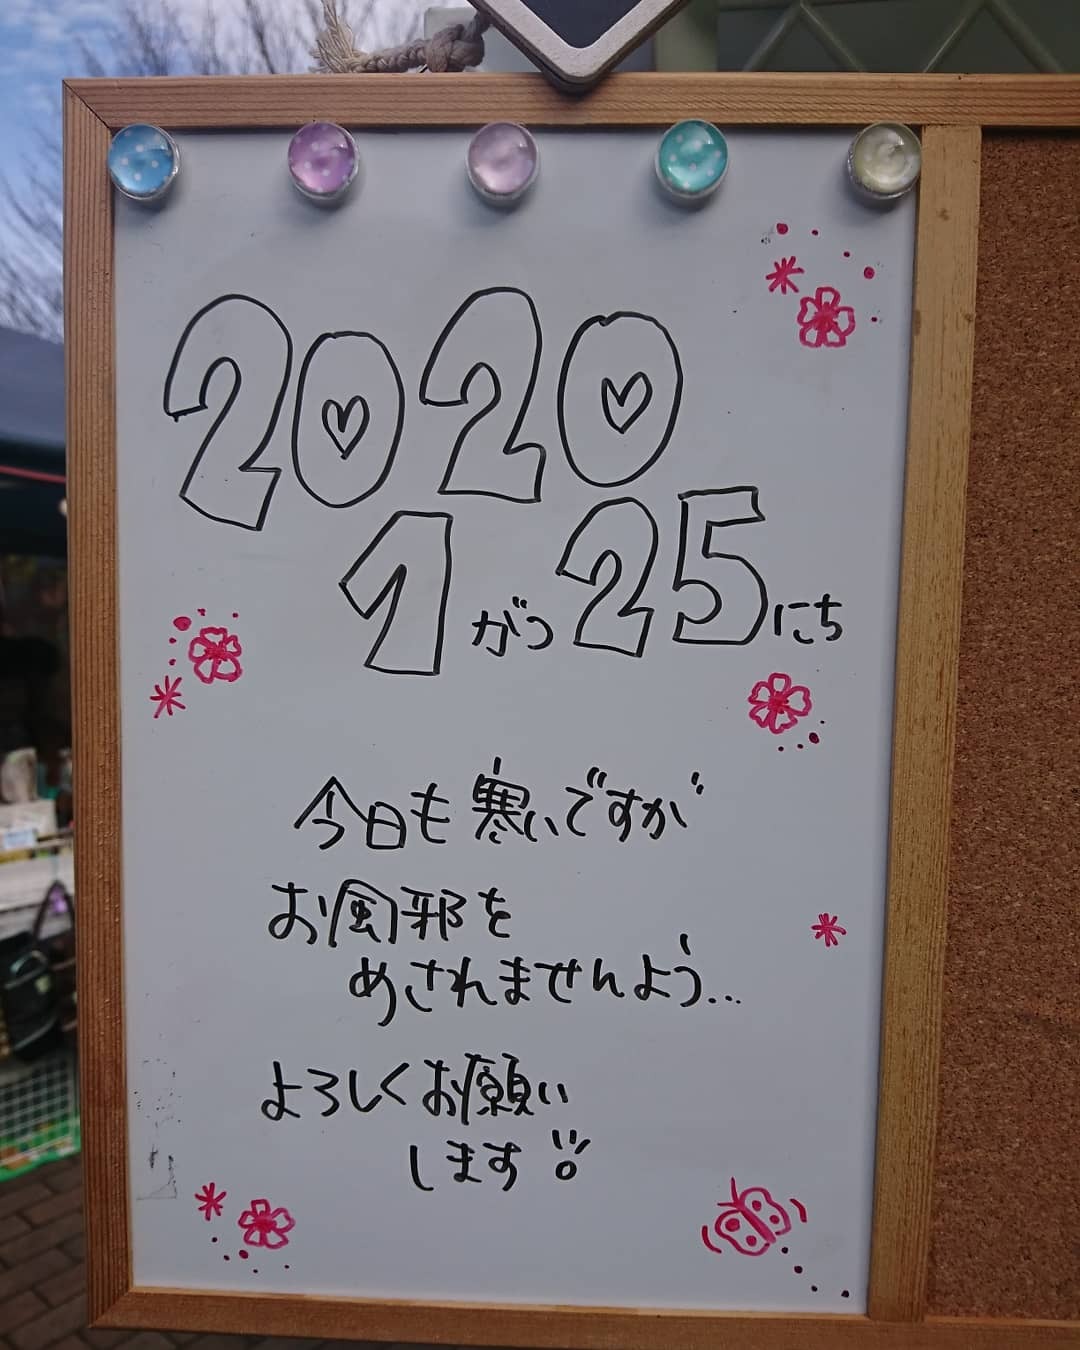 2020
1がつ25にち
今日も寒いですが
お風邪を
めされませんよう...
よろしくお願い
します